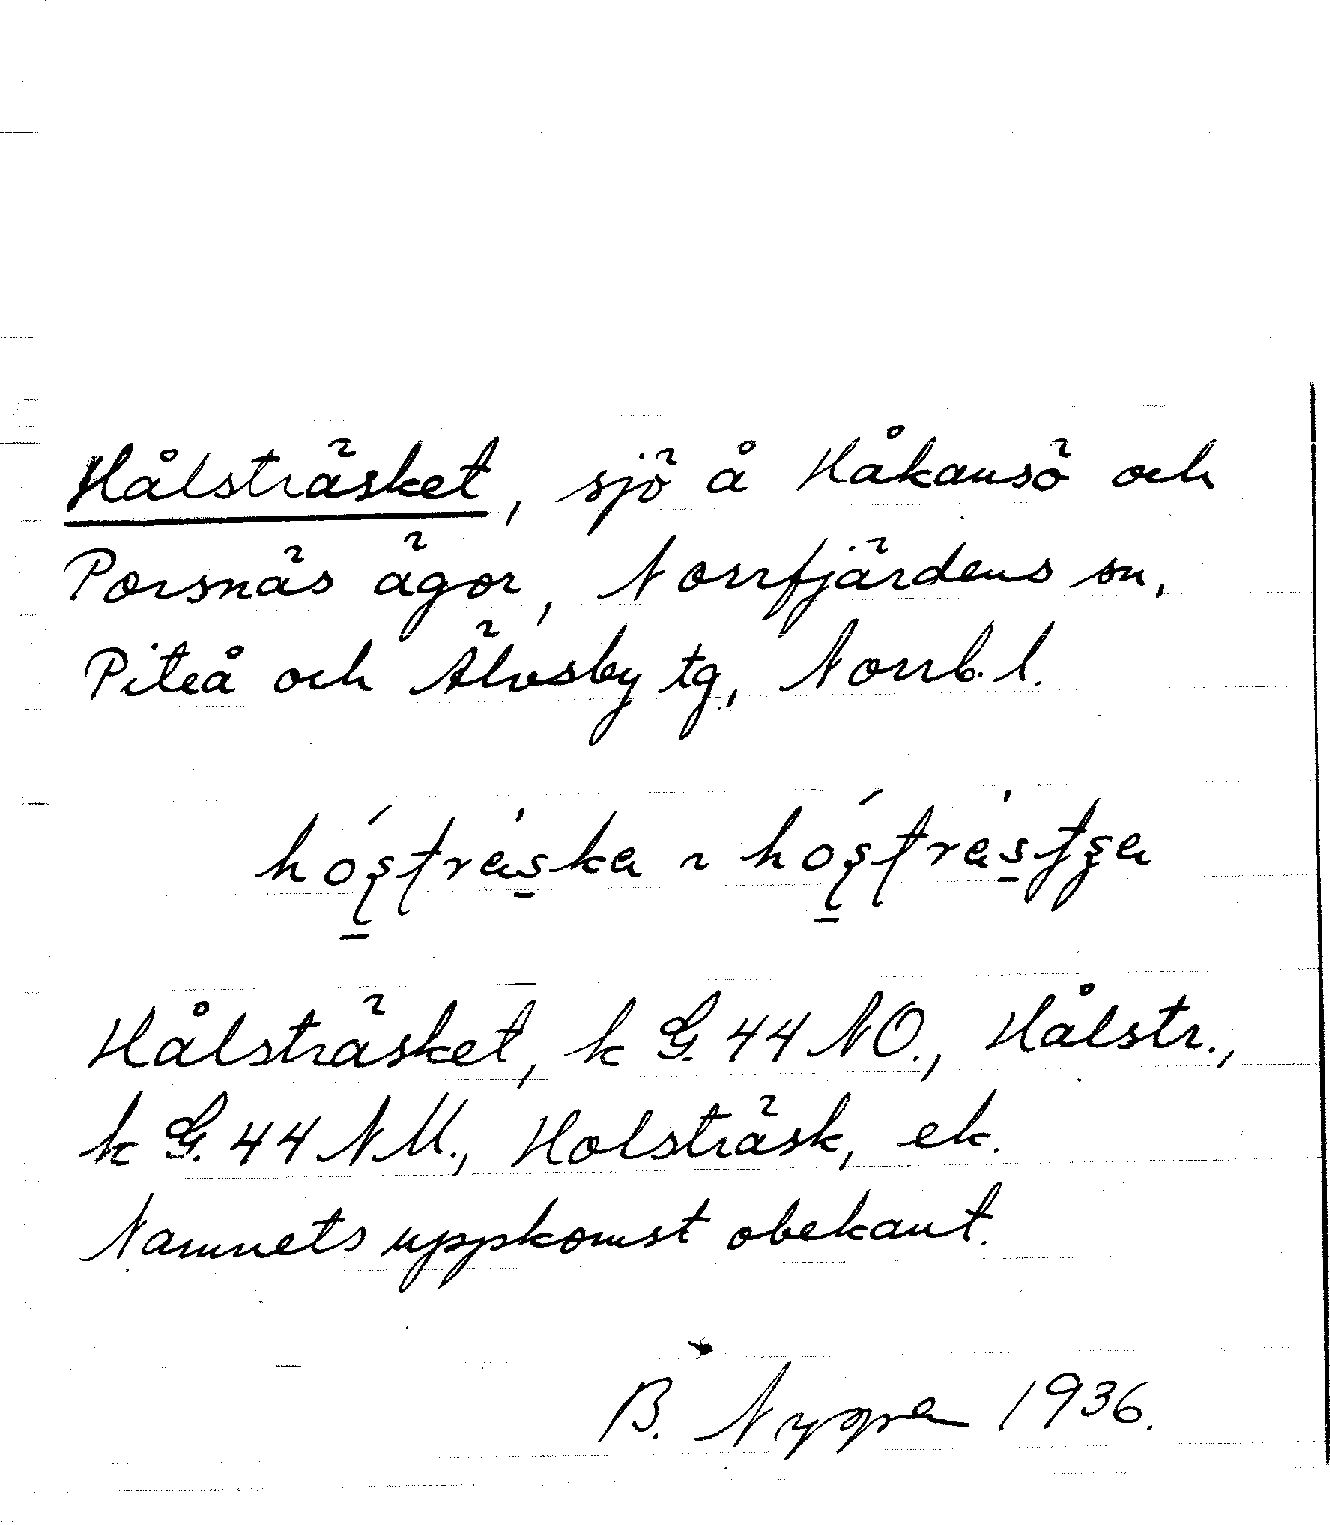 Hålsträsket, sjö å Håkansö och
Porsnäs ägor, Norrfjärdens sn,
Piteå och Älvsby tg, Norrb. l.
Hålsträsket, k G. 44 NO., Hålstr.,
k G. 44 NU., Holsträsk, ek.
Namnets uppkomst obekant.
B. Nyppa 1936.